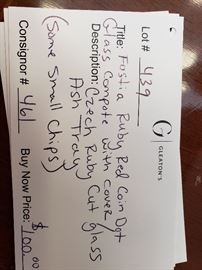 Lot # 439
G
GLEATON'S
Title: Fostia Ruby Red Coin Dot
Glass Compote with Cover/
Description: Czech Ruby Cut Glass
Ash Tray
(Some Small Chips)
Consignor # 461
Buy Now Price: $100.00